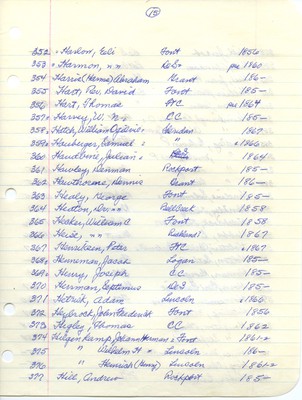 15
352 Harlow, Eli Font 1856
353 Harmon, " " DeS pre 1860
354 Harris (Harris) Abraham Grant 186-
355 Hart, Rev. David Font 185-
356 Hart, Thomas PTC pre 1864
357 Harvey, W. N. CC 185-
358 Hatch, William Ogilvie
359 Hauberger, Samuel " c1866
360 1864
361 Hawley, Herman Rockport 185-
362 Hawthorne, Dennis Grant 186-
363 Healy, George Font 185-
364 Heaton, Dr. " " 1858
365 William C Font 1858
366 " " 1867
367 Henricksen, Peter PTC c1867
368 Henneman, Jacob Logan 185-
369 Henry, Joseph CC 185-
370 Herman, Septimus DeS 185-
371 Hetrick, Adam Lincoln c1866
372 Heybrock, John Frederick Font 1856
373 Higley, Thomas CC 1862
374 Hilgenkamp, Johann Herman Font 1861-2
375 " Wilhelm H " Lincoln 186-
376 " Heinrich (Henry) Lincoln 1861-2
377 Hill, Andrew Rockport 185-